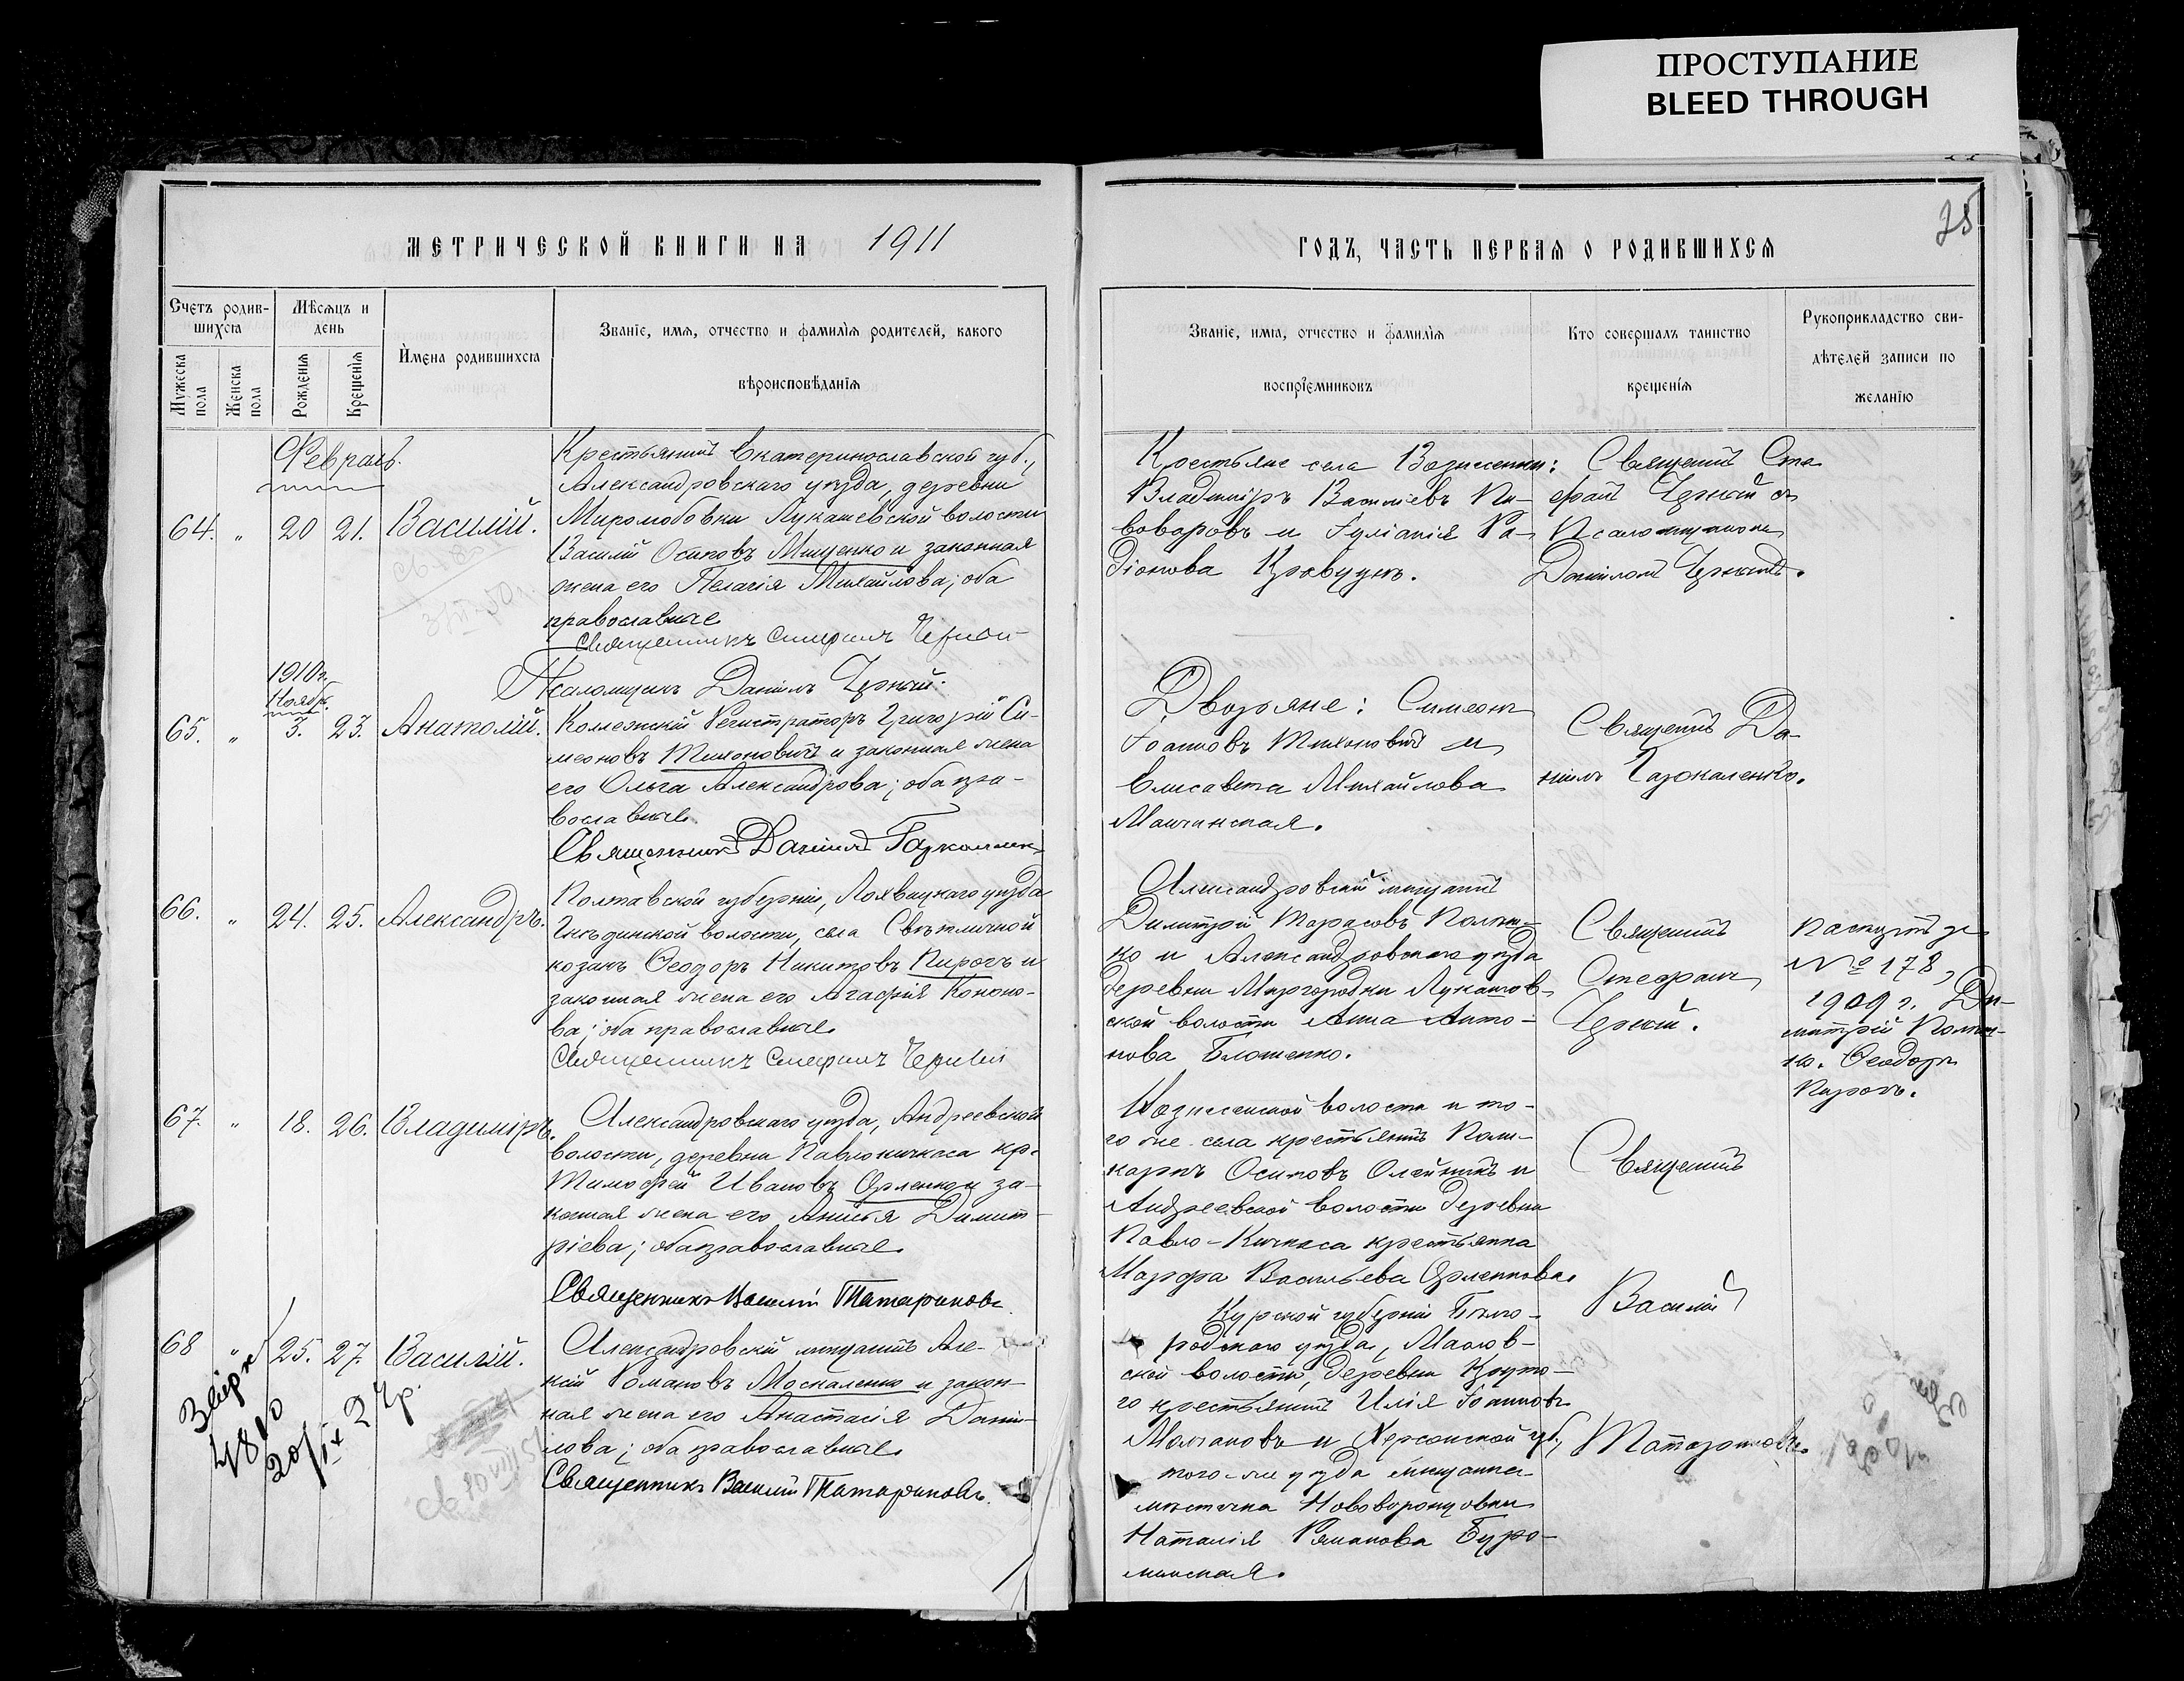 ПРОСТУПАНИЕ
BLEED THROUGH
25
МЕТРИЧЕСКОЙ КНИГИ НА 1911
ГОДЪ, ЧАСТЬ ПЕРВАЯ О РОДИВШИХСЯ
Счетъ родив-
шихся
Мужеска пола
Женска пола
Мѣсяцъ и
день
Рожденія
Крещенія
Имена родившихся
Званіе, имя, отчество и фамилія родителей, какого
вѣроисповѣданія
Званіе, имя, отчество и фамилія
воспріемниковъ
Кто совершалъ таинство
крещенія
Рукоприкладство сви-
дѣтелей записи по
желанію
Февраль.
64. " 20 21. Василій.
Крестьянинъ Екатеринославской губ.,
Александровскаго уѣзда, деревни
Миролюбовки Лукашевской волости
Василій Осиповъ Мищенко и законная
жена его Пелагія Михайлова; оба
православные
Священникъ Стефанъ Черный
Псаломщикъ Даніилъ Черный.
Крестьяне села Вознесенки:
Владиміръ Васильевъ Пи-
воваровъ и Іуліанія Ра-
діонова Кравцунъ.
Священникъ Сте
фанъ Черный съ
Псаломщикомъ
Даніиломъ Чернымъ.
1910 г.
Ноябрь.
65. " 3. 23. Анатолій.
Коллежскій Регистраторъ Григорій Си-
меоновъ Тихоновичъ и законная жена
его Ольга Александрова; оба пра-
вославные.
Священникъ Даніилъ
Дворяне: Симеонъ
Іоанновъ Тихоновичъ и
Елисавета Михайлова
Священникъ Да-
ніилъ
66. " 24. 25. Александръ.
Полтавской губерніи, Лохвицкаго уѣзда
Гнѣдинской волости, села Свѣтличной
козакъ Ѳеодоръ Никитовъ Пирогъ и
законная жена его Агафія Кононо-
ва; оба православные
Священникъ Стефанъ Черный
Александровскій мѣщанинъ
Димитрій Тарасовъ
ко и Александровскаго уѣзда
деревни Миргородки Лукашов-
ской волости Анна Анто-
нова Блошенко.
Священникъ
Стефанъ
Черный.
Паспортъ за
№ 178,
1909 г. Ди-
митрій
ко. Ѳеодоръ
Пирогъ.
67. " 18. 26. Владиміръ.
Александровскаго уѣзда, Андреевской
волости, деревни Павлокичкаса кр.
Тимофей Ивановъ Орленко и за-
конная жена его Анисья Димит-
ріева; оба православные
Священникъ Василій Татариновъ.
Вознесенской волости и то-
го же села крестьянинъ Поли-
карпъ Осиповъ Олейникъ и
Андреевской волости деревни
Павло-Кичкаса крестьянка
Марфа Васильева Орленкова.
Священникъ
Василій
Татариновъ.
68 " 25. 27. Василій.
Александровскій мѣщанинъ Але-
ксій Романовъ Москаленко и закон-
ная жена его Анастасія Даніи-
лова; оба православные
Священникъ Василій Татариновъ.
Курской губерніи Бѣлго-
родскаго уѣзда, Маслов-
ской волости, деревни Круто-
го крестьянинъ Илія Іоанновъ
Молчановъ и Херсонской губ.,
того-же уѣзда мѣщанка
мѣстечка Нововоронцовки
Наталія Романова Буро-
минская.
4810